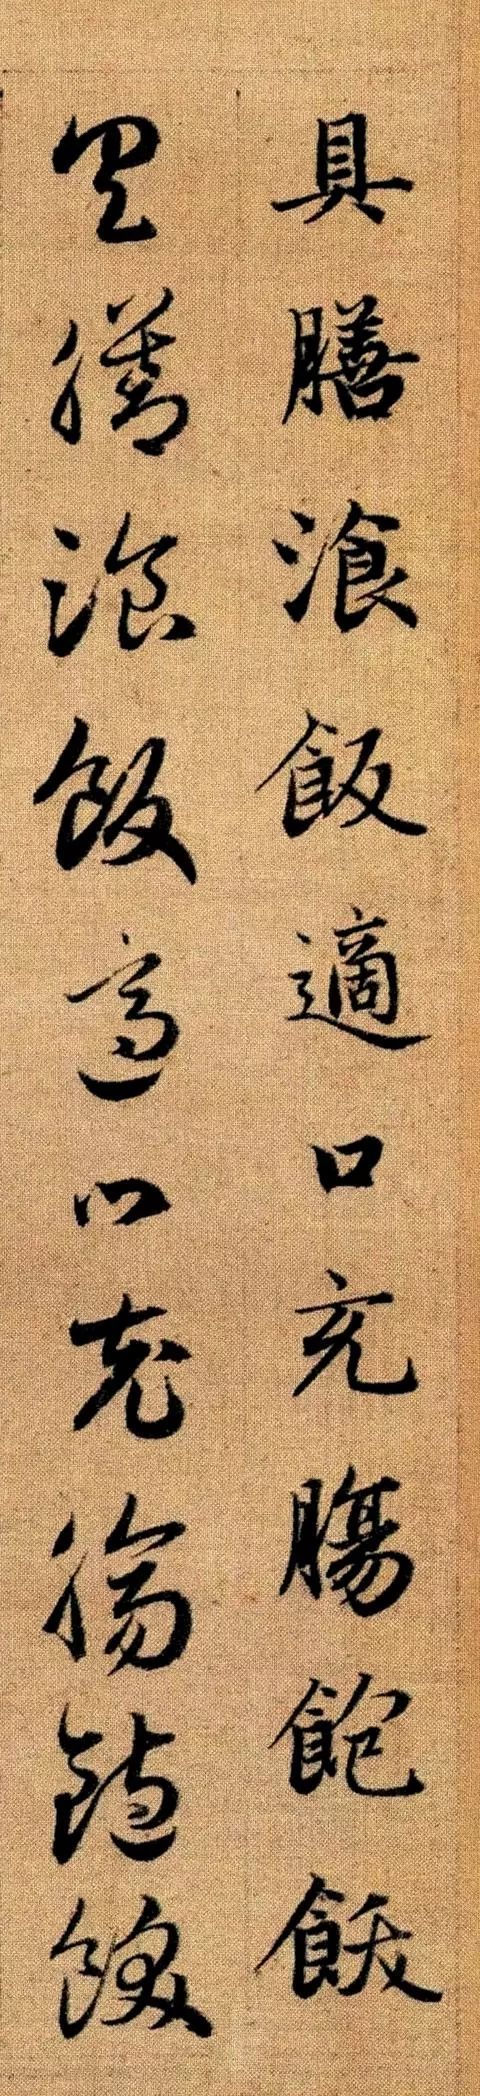 具膳飡飯適口充腸飽飫
具膳飡飯適口充腸飽飫